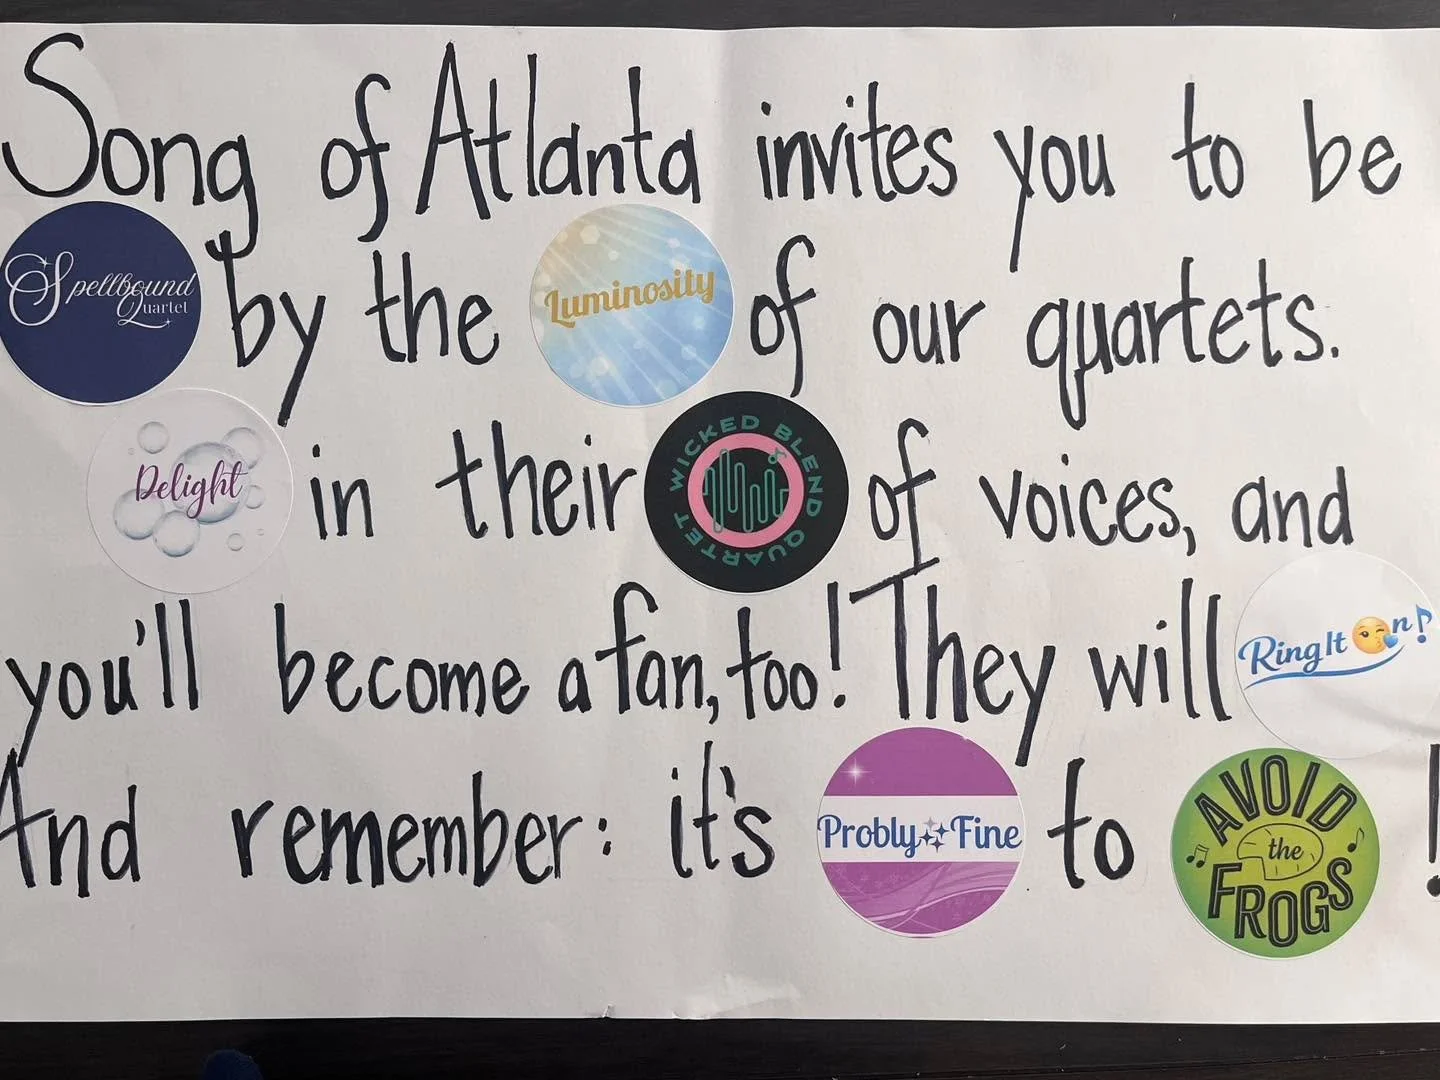 Song of Atlanta invites you to be
Spellbound Quartet by the Luminosity of our quartets.
Delight in their WICKED BLEND QUARTET of voices, and
you'll become a fan, too! They will Ring It On!
And remember: it's Probly Fine to AVOID the FROGS !